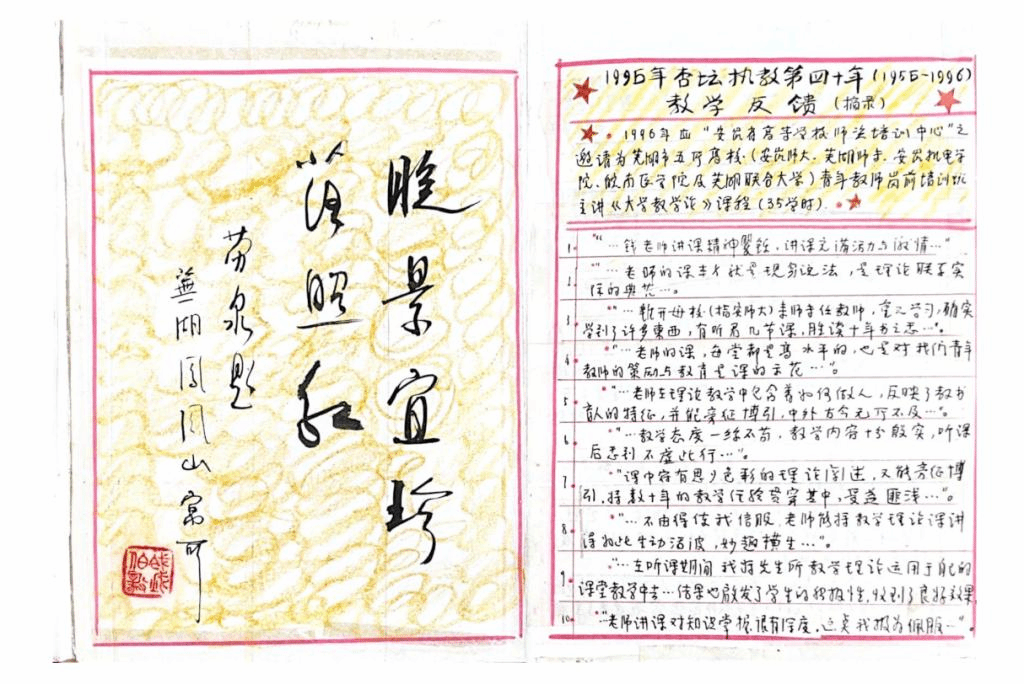 晚景宜珍
落照红
劳泉题
芜湖凤凰山寓所
1995年杏坛执教第四十年(1955-1996)
教学反馈(摘录)
1996年应“安徽省高等学校师资培训中心”之
邀请为芜湖市五所高校(安徽师大、芜湖师专、安徽机电学
院、皖南医学院及芜湖联合大学)青年教师岗前培训班
主讲《大学教学论》课程(35学时).
1. “…钱老师讲课精神矍铄,讲课充满活力与激情…”
“…老师的课本身就是现身说法,是理论联系实
际的典范…”。
3 “…离开母校(指安师大)来师专任教师,重又学习,确实
学到了许多東西,有听君几节课,胜读十年书之感…”。
4. “…老师的课,每堂都是高水平的,也是对我们青年
教师的策励与教育是课的示范…”。
5 “…老师在理论教学中包含着如何做人,反映了教书
育人的特征,并能旁征博引,中外古今无所不及…”。
6 “…教学态度一丝不苟,教学内容十分殷实,听课
后感到不虚此行…”。
7. “课中富有思想色彩的理论阐述,又能旁征博
引,将数十年的教学经验贯穿其中,受益匪浅…”。
8. “…不由得使我信服,老师能将教学理论课讲
得如此生动活泼,妙趣横生…”。
9. “…在听课期间我将先生所教学理论运用于自己的
课堂教学中去…结果也启发了学生的积极性,收到了良好效果
10. “老师讲课对知识掌握很有深度,这点我极为佩服…”。